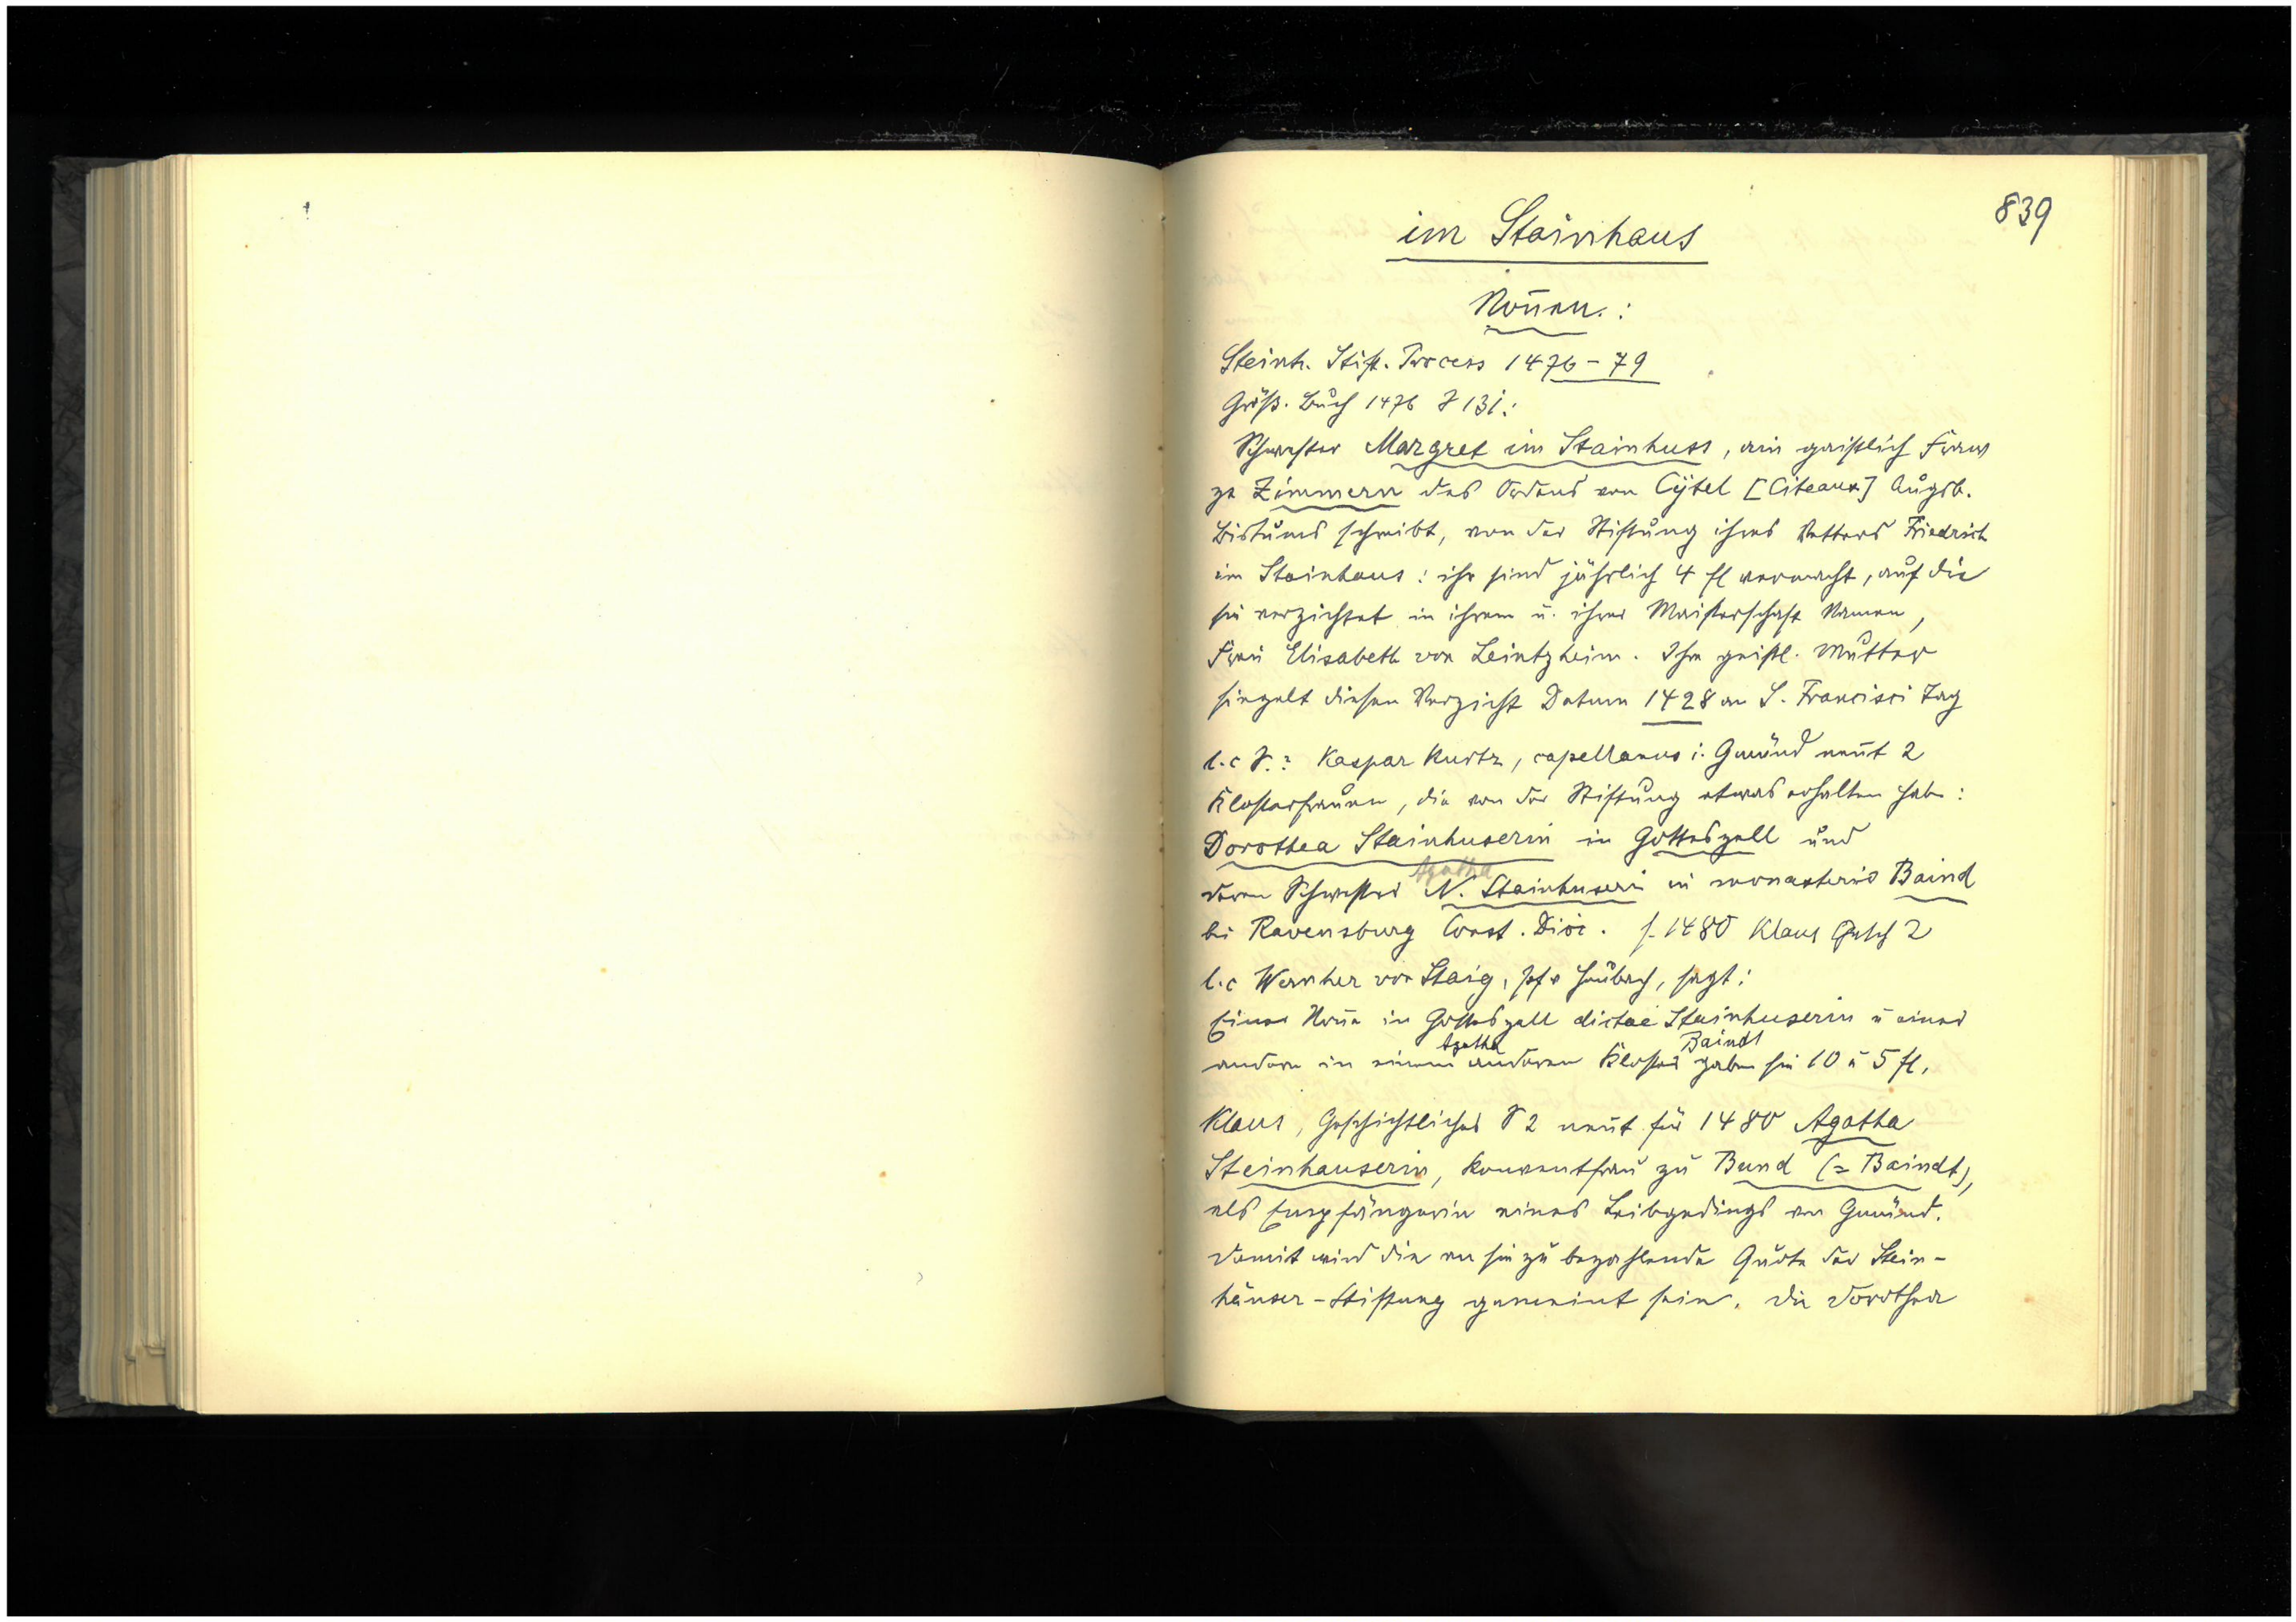 839
im Stainhaus
Nonnen.:
Steinh. Stift. Process 1476-79
Größ. Buch 1476 S 131:
Schwester Margret im Stainhuss, ain gaistlich Fraw
ze Zimmern des Ordens von Cÿtel [Citeaux] Augsb.
Bistums schreibt, von der Stiftung ihres Vetters Friedrich
im Stainhaus: ihr sind jährlich 4 fl vermacht, auf die
sie verzichtet in ihrem u. ihrer Maisterschaft Namen,
Frau Elisabeth von Leintzheim. Ihre geistl. Mutter
siegelt diesen Verzicht Datum 1428 an S. Francisci Tag
l.c S.? Kaspar Kurtz, capellanus i. Gmünd nent 2
Klosterfrauen, die von der Stiftung etwas erhalten habe:
Dorothea Stainhuserin in Gotteszell und
Agatha
deren Schwester N. Stainhuseri in monasterio Baind
bi Ravensburg Const. Diöc. s. 1480 Klaus Gesch 2
l.c Wernher von Staig, Pfr Heubach, sagt:
Einer Nonne in Gotteszell dictae Stainhuserin u einer
Agatha Baindt
andern in einem anderen Kloster gaben sie 10 u 5 fl.
Klaus, Geschichtliches S 2 nent für 1480 Agatha
Steinhauserin, Konventfrau zu Bund (= Baindt),
als Empfängerin eines Leibgedings von Gmünd.
Damit wird die an sie zu bezahlende Quote der Stein-
häuser-Stiftung gemeint sein. Die Dorothea